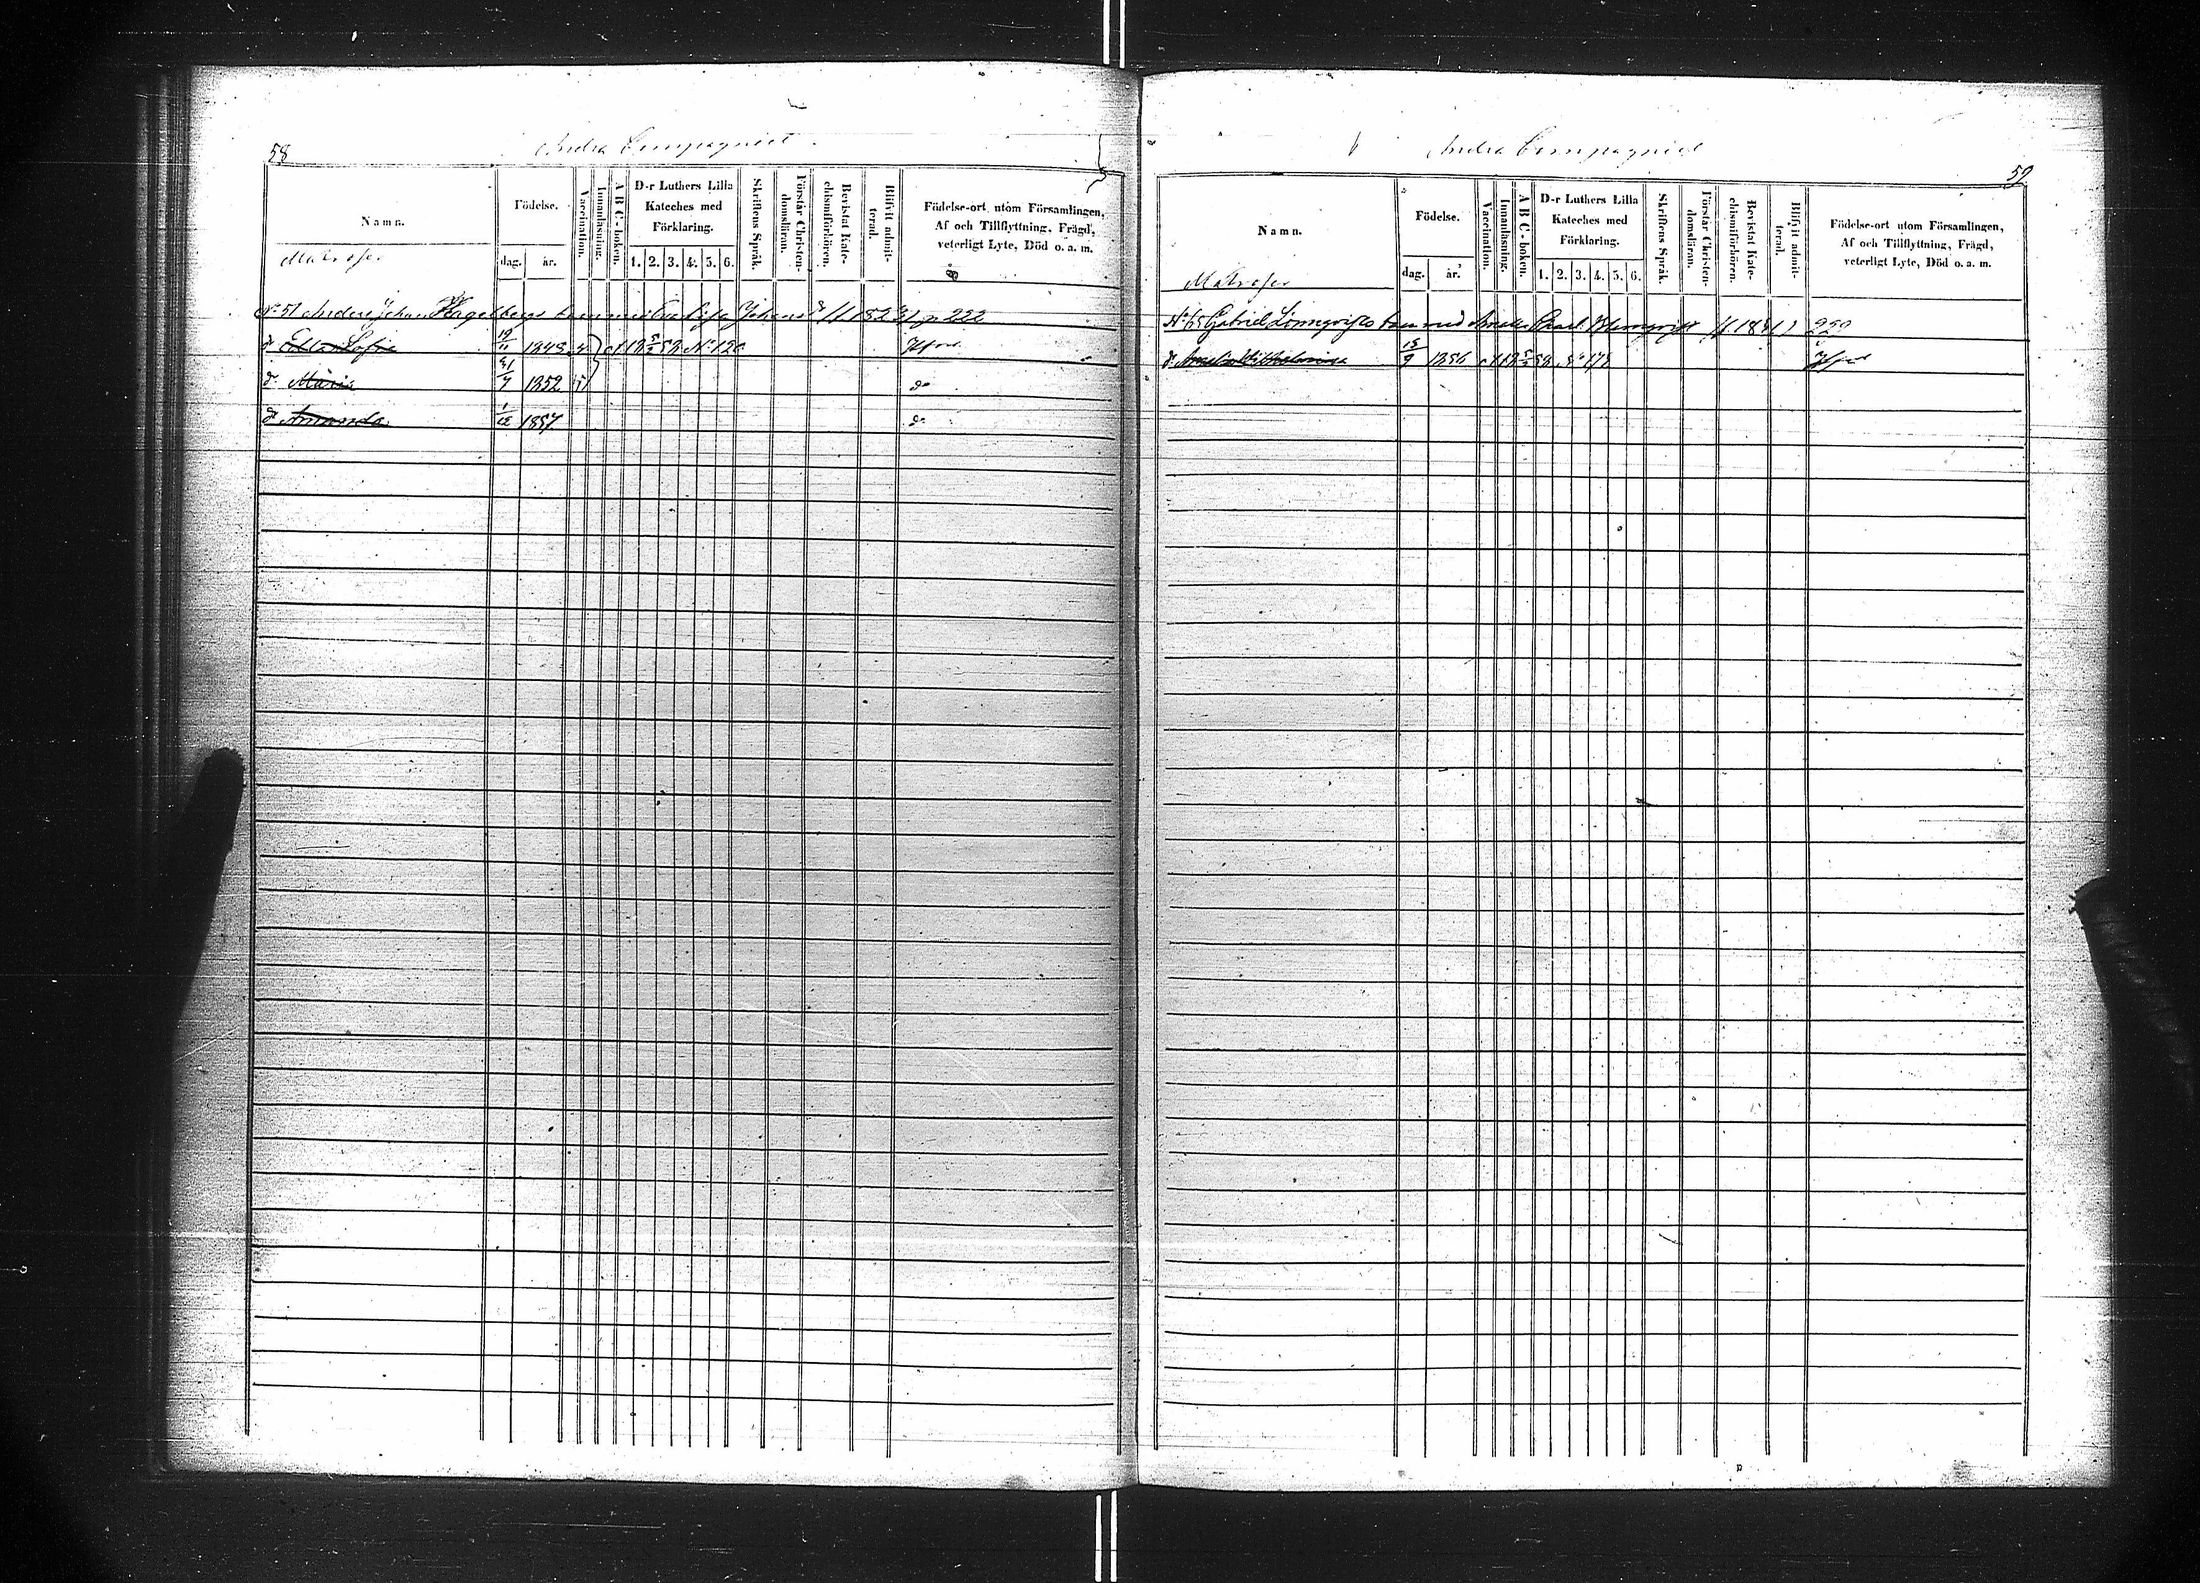 58
Andra Compagniet
Namn.
Födelse.
dag. år.
Vaccination.
Innanläsning.
A B C-boken.
D-r Luthers Lilla
Kateches med
Förklaring.
1. 2. 3. 4. 5. 6.
Skriftens Språk.
Förstår Christen-
domsläran.
Bevistat Kate-
chismiförhören.
Blifvit admit-
terad.
Födelse-ort utom Församlingen,
Af och Tillflyttning, Frägd,
veterligt Lyte, Död o. a. m.
Matroser
No 51 Anders Johan Hagelbergs barn med Eva Lisa Johans dr (f. 1823) p 222
d. Sofia 19/11 1848 Hfors
d. Maria 31/7 1852 do
d. Amanda 1/12 1857 do
Andra Compagniet
59
Namn.
Födelse.
dag. år.
Vaccination.
Innanläsning.
A B C-boken.
D-r Luthers Lilla
Kateches med
Förklaring.
1. 2. 3. 4. 5. 6.
Skriftens Språk.
Förstår Christen-
domsläran.
Bevistat Kate-
chismiförhören.
Blifvit admit-
terad.
Födelse-ort utom Församlingen,
Af och Tillflyttning, Frägd,
veterligt Lyte, Död o. a. m.
Matroser
Gabriel Lönnqvists barn med
d. Wilhelmina 1856